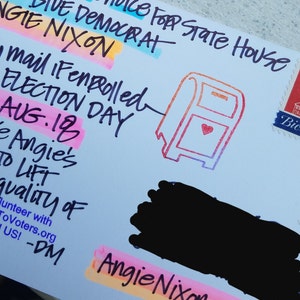 FOR STATE HOUSE
BLUE DEMOCRAT
ANGIE NIXON
MAIL IF ENROLLED
ELECTION DAY
AUG. 18
ANGIES
TO LIFT
QUALITY OF
Volunteer with
ToVoters.org
US!
-DM
ANGIE NIXON